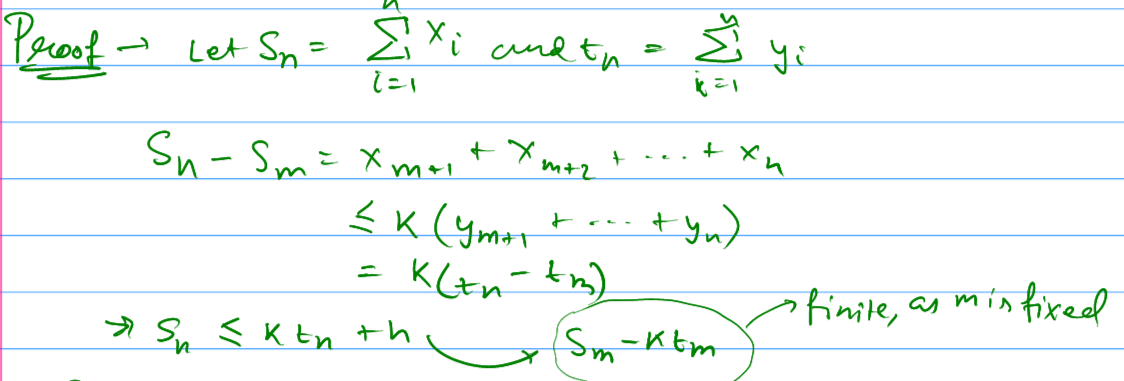 Proof → Let Sₙ = ∑ᵢ₌₁ⁿ xᵢ and tₙ = ∑ᵢ₌₁ⁿ yᵢ
Sₙ - Sₘ = xₘ₊₁ + xₘ₊₂ + ... + xₙ
≤ K (yₘ₊₁ + ... + yₙ)
= K(tₙ - tₘ)
→ Sₙ ≤ K tₙ + h → Sₘ - K tₘ → finite, as m is fixed